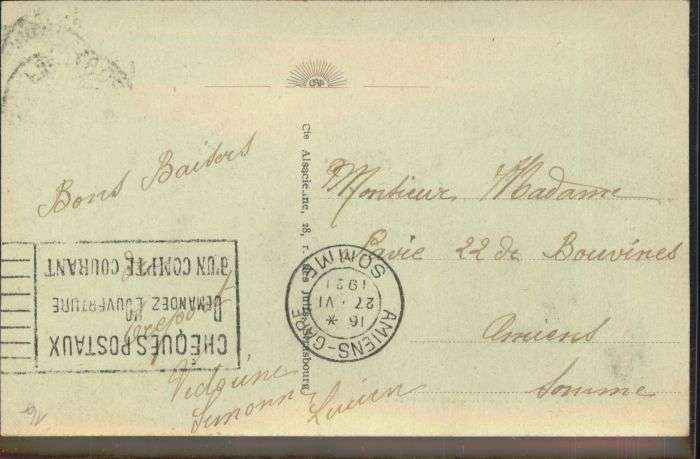 CAP
Cie Alsacienne, 28, r. des Juifs, Strasbourg
Bons Baisers
Monsieur Madame
Lavie 22 de Bouvines
Amiens
Somme
Simonne Lucien
CHÈQUES POSTAUX
DEMANDEZ L'OUVERTURE
D'UN COMPTE COURANT
AMIENS-GARE
16 *
27 · VI
1921
SOMME